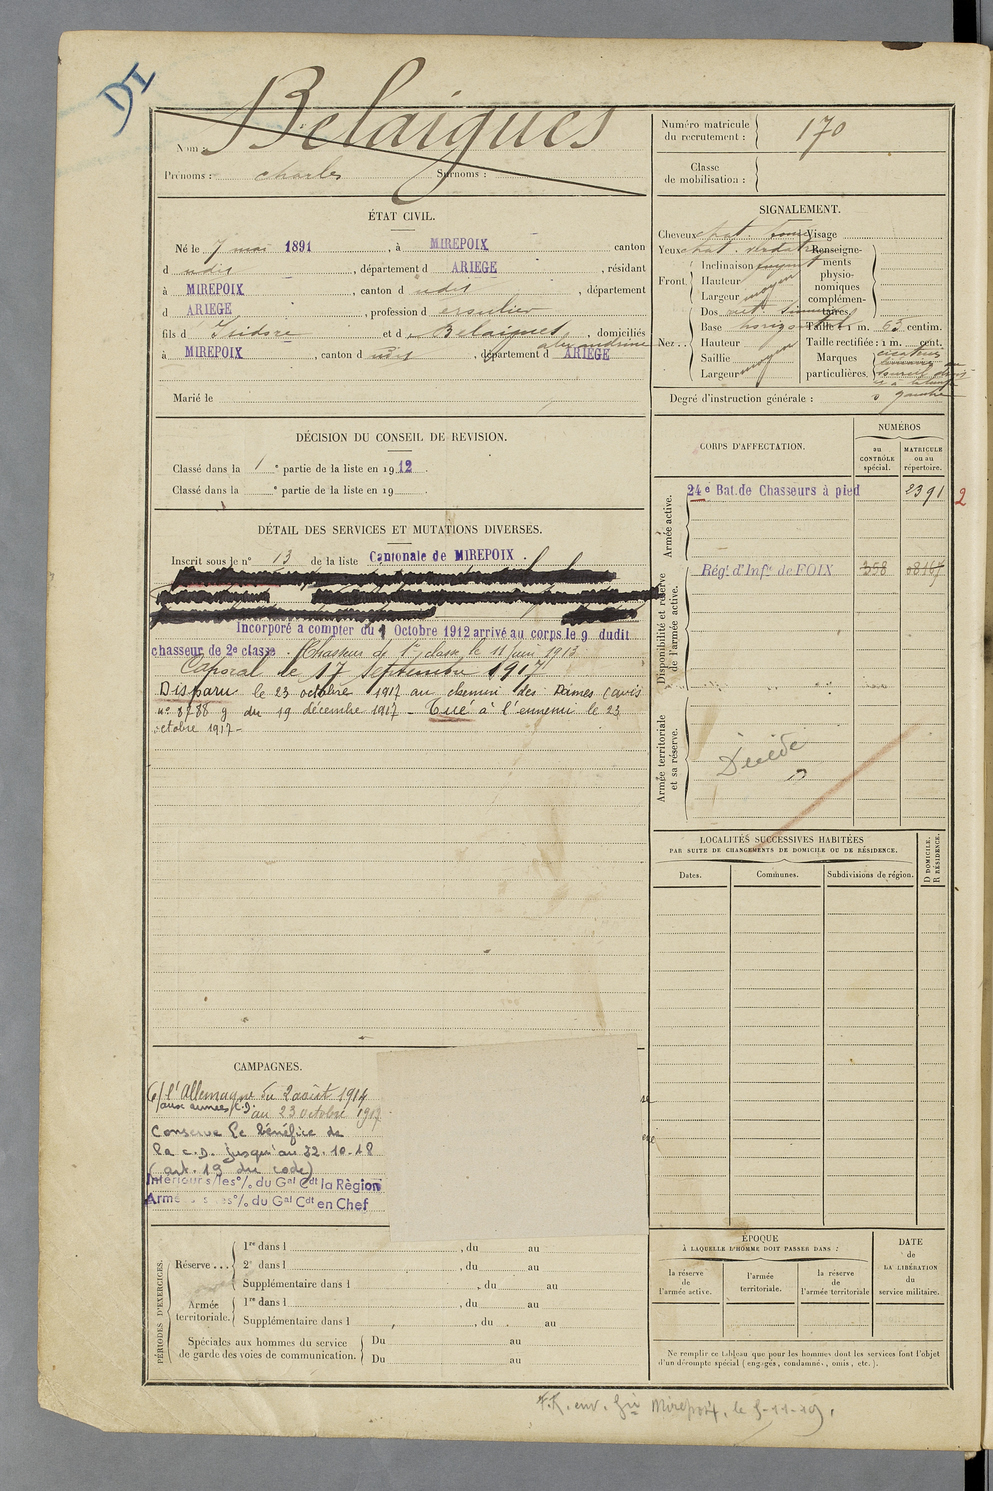 DI
Nom : Belaigues
Prénoms : charles Surnoms :
Numéro matricule du recrutement : 170
Classe de mobilisation :
ÉTAT CIVIL.
Né le 7 mai 1891, à MIREPOIX canton
d udit, département d ARIEGE, résidant
à MIREPOIX, canton d udit, département
d ARIEGE, profession d
fils d Isidore et d Belaigues alexandrine, domiciliés
à MIREPOIX, canton d udit, département d ARIEGE
Marié le
SIGNALEMENT.
Cheveux chat. Visage
Yeux chat. verdatre Renseigne-
Inclinaison fuyant ments
Front. Hauteur physio-
Largeur moyen nomiques
complémen-
Dos taires.
Base horizontal Taille : 1 m. 63 centim.
Nez .. Hauteur Taille rectifiée : 1 m. cent.
Saillie Marques
Largeur moyen particulières. cicatrice
gauche
Degré d'instruction générale :
DÉCISION DU CONSEIL DE REVISION.
Classé dans la 1e partie de la liste en 1912.
Classé dans la e partie de la liste en 19
CORPS D'AFFECTATION.
NUMÉROS
au CONTRÔLE spécial.
MATRICULE ou au répertoire.
Armée active.
24e Bat. de Chasseurs à pied 2391 2
Disponibilité et réserve de l'armée active.
Régt d'Infie de FOIX 358 08167
Armée territoriale et sa réserve.
Décédé
DÉTAIL DES SERVICES ET MUTATIONS DIVERSES.
Inscrit sous le n° 13 de la liste Cantonale de MIREPOIX.
Incorporé à compter du 1 Octobre 1912 arrivé au corps le 9 dudit
chasseur de 2e classe. Chasseur de 1e classe le 11 Juin 1913
Caporal le 17 Septembre 1917
Disparu le 23 octobre 1917 au chemin des Dames (avis
n° 8788 g du 19 décembre 1917 - Tué à l'ennemi le 23
octobre 1917 -
LOCALITÉS SUCCESSIVES HABITÉES
PAR SUITE DE CHANGEMENTS DE DOMICILE OU DE RÉSIDENCE.
Dates. Communes. Subdivisions de région.
D DOMICILE. R RÉSIDENCE.
CAMPAGNES.
C/ l'Allemagne du 2 août 1914
aux armées C.D. au 23 octobre 1917
Conserve le bénéfice de
la C.D. jusqu'au 22.10.18
(art. 19 du code)
Intérieur s/les % du Gal Cdt la Région
Armé % du Gal Cdt en Chef
PÉRIODES D'EXERCICES.
Réserve ...
1re dans l , du au
2e dans l , du au
Supplémentaire dans l , du au
Armée territoriale.
1re dans l , du au
Supplémentaire dans l , du au
Spéciales aux hommes du service de garde des voies de communication.
Du au
Du au
ÉPOQUE
À LAQUELLE L'HOMME DOIT PASSER DANS :
la réserve de l'armée active.
l'armée territoriale.
la réserve de l'armée territoriale
DATE de LA LIBÉRATION du service militaire.
Ne remplir ce tableau que pour les hommes dont les services font l'objet
d'un décompte spécial (engagés, condamnés, omis, etc.).
env. Mirepoix, le